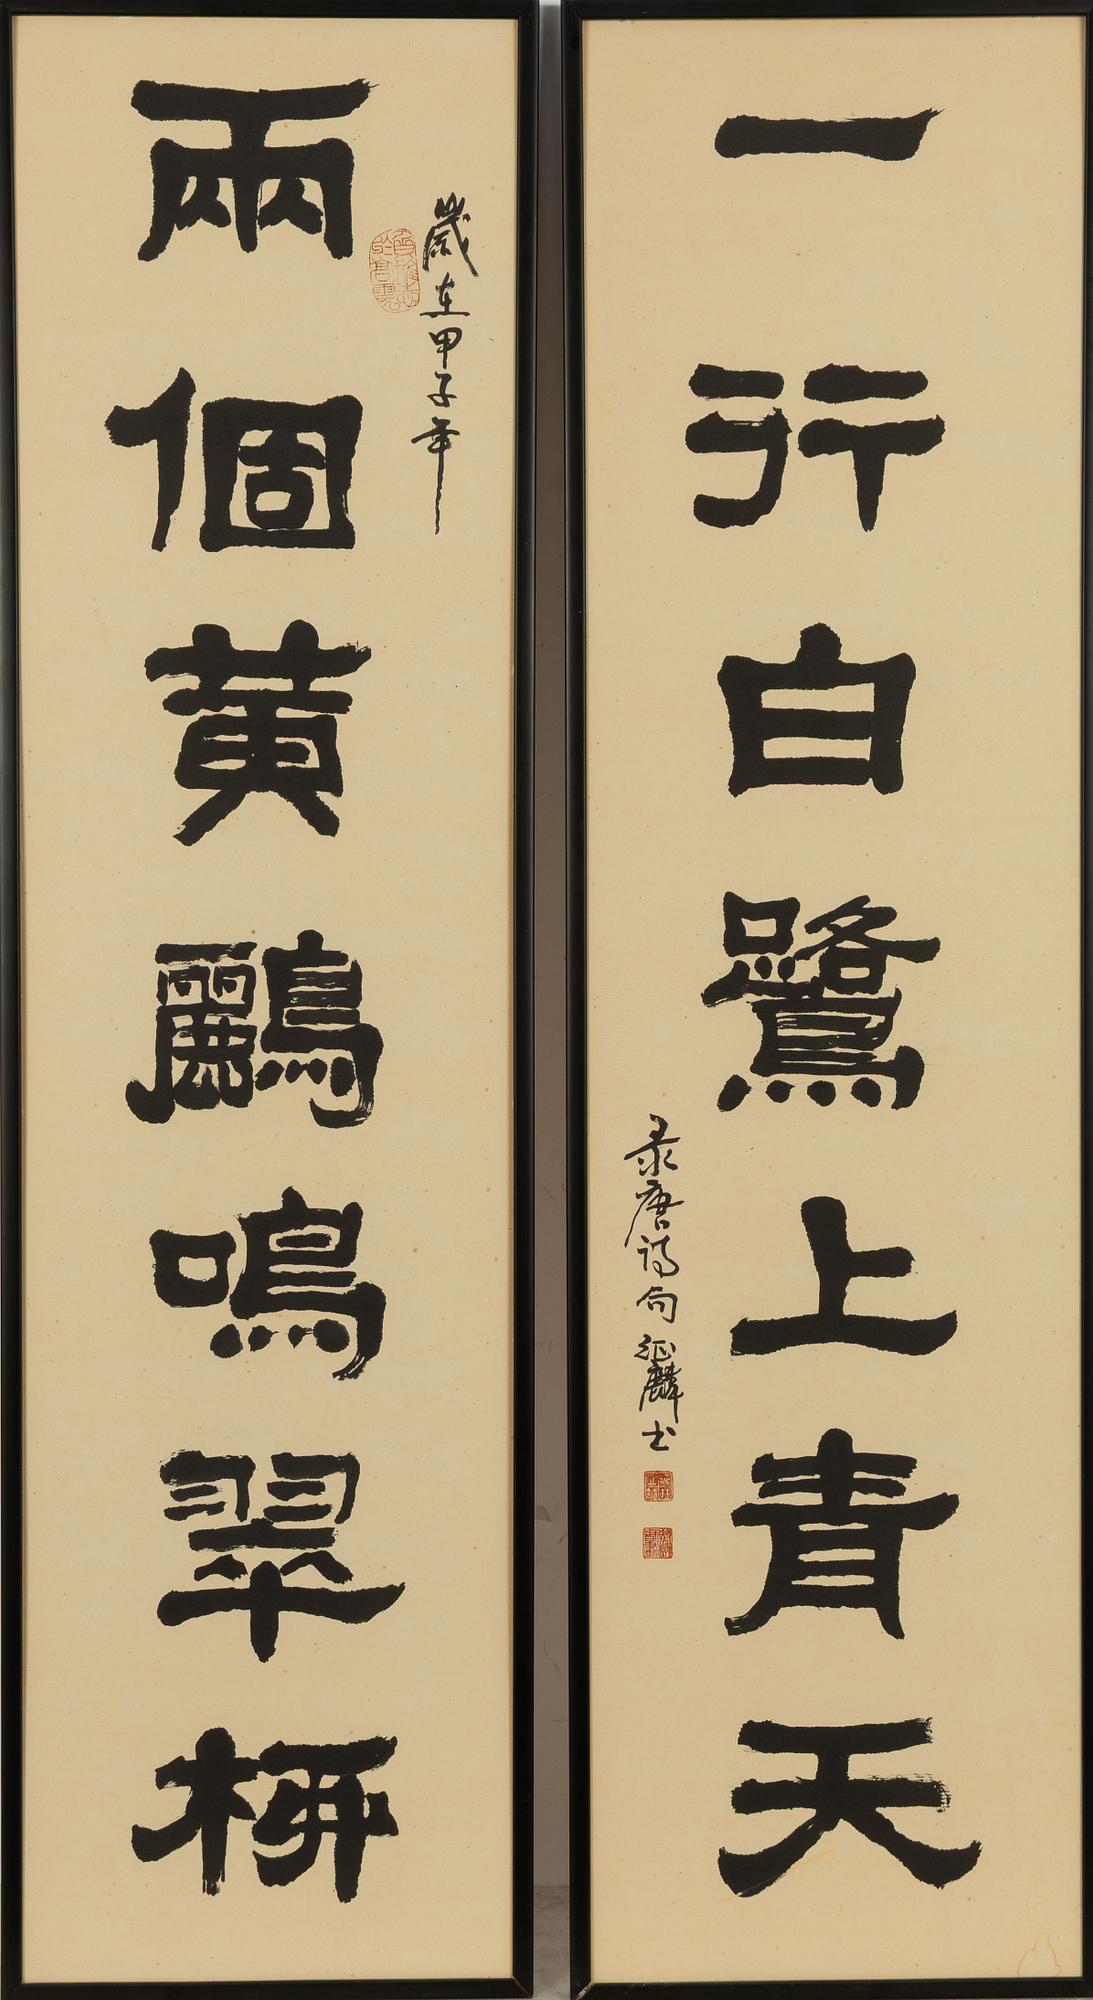 兩個黃鸝鳴翠柳
歲在甲子年
一行白鷺上青天
录唐诗句征麟书